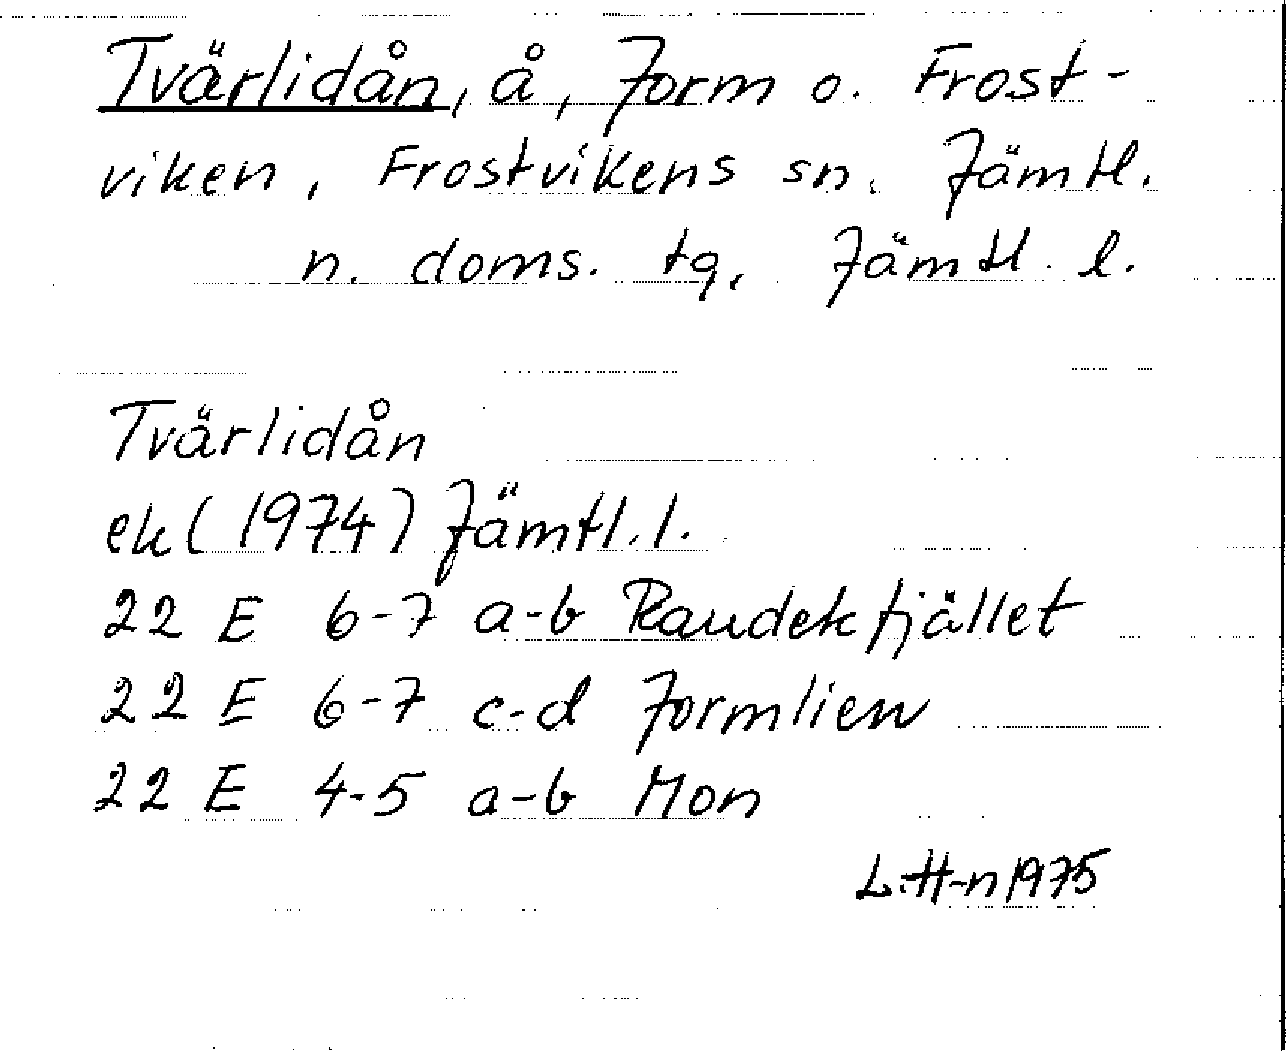 Tvärlidån, å, Jorm o. Frost-
viken, Frostvikens sn. Jämtl.
n. doms. tg, Jämtl. l.
Tvärlidån
ek (1974) Jämtl. l.
22 E 6-7 a-b Raudekfjället
22 E 6-7 c-d Jormlien
22 E 4-5 a-b Mon
L. H-n 1975